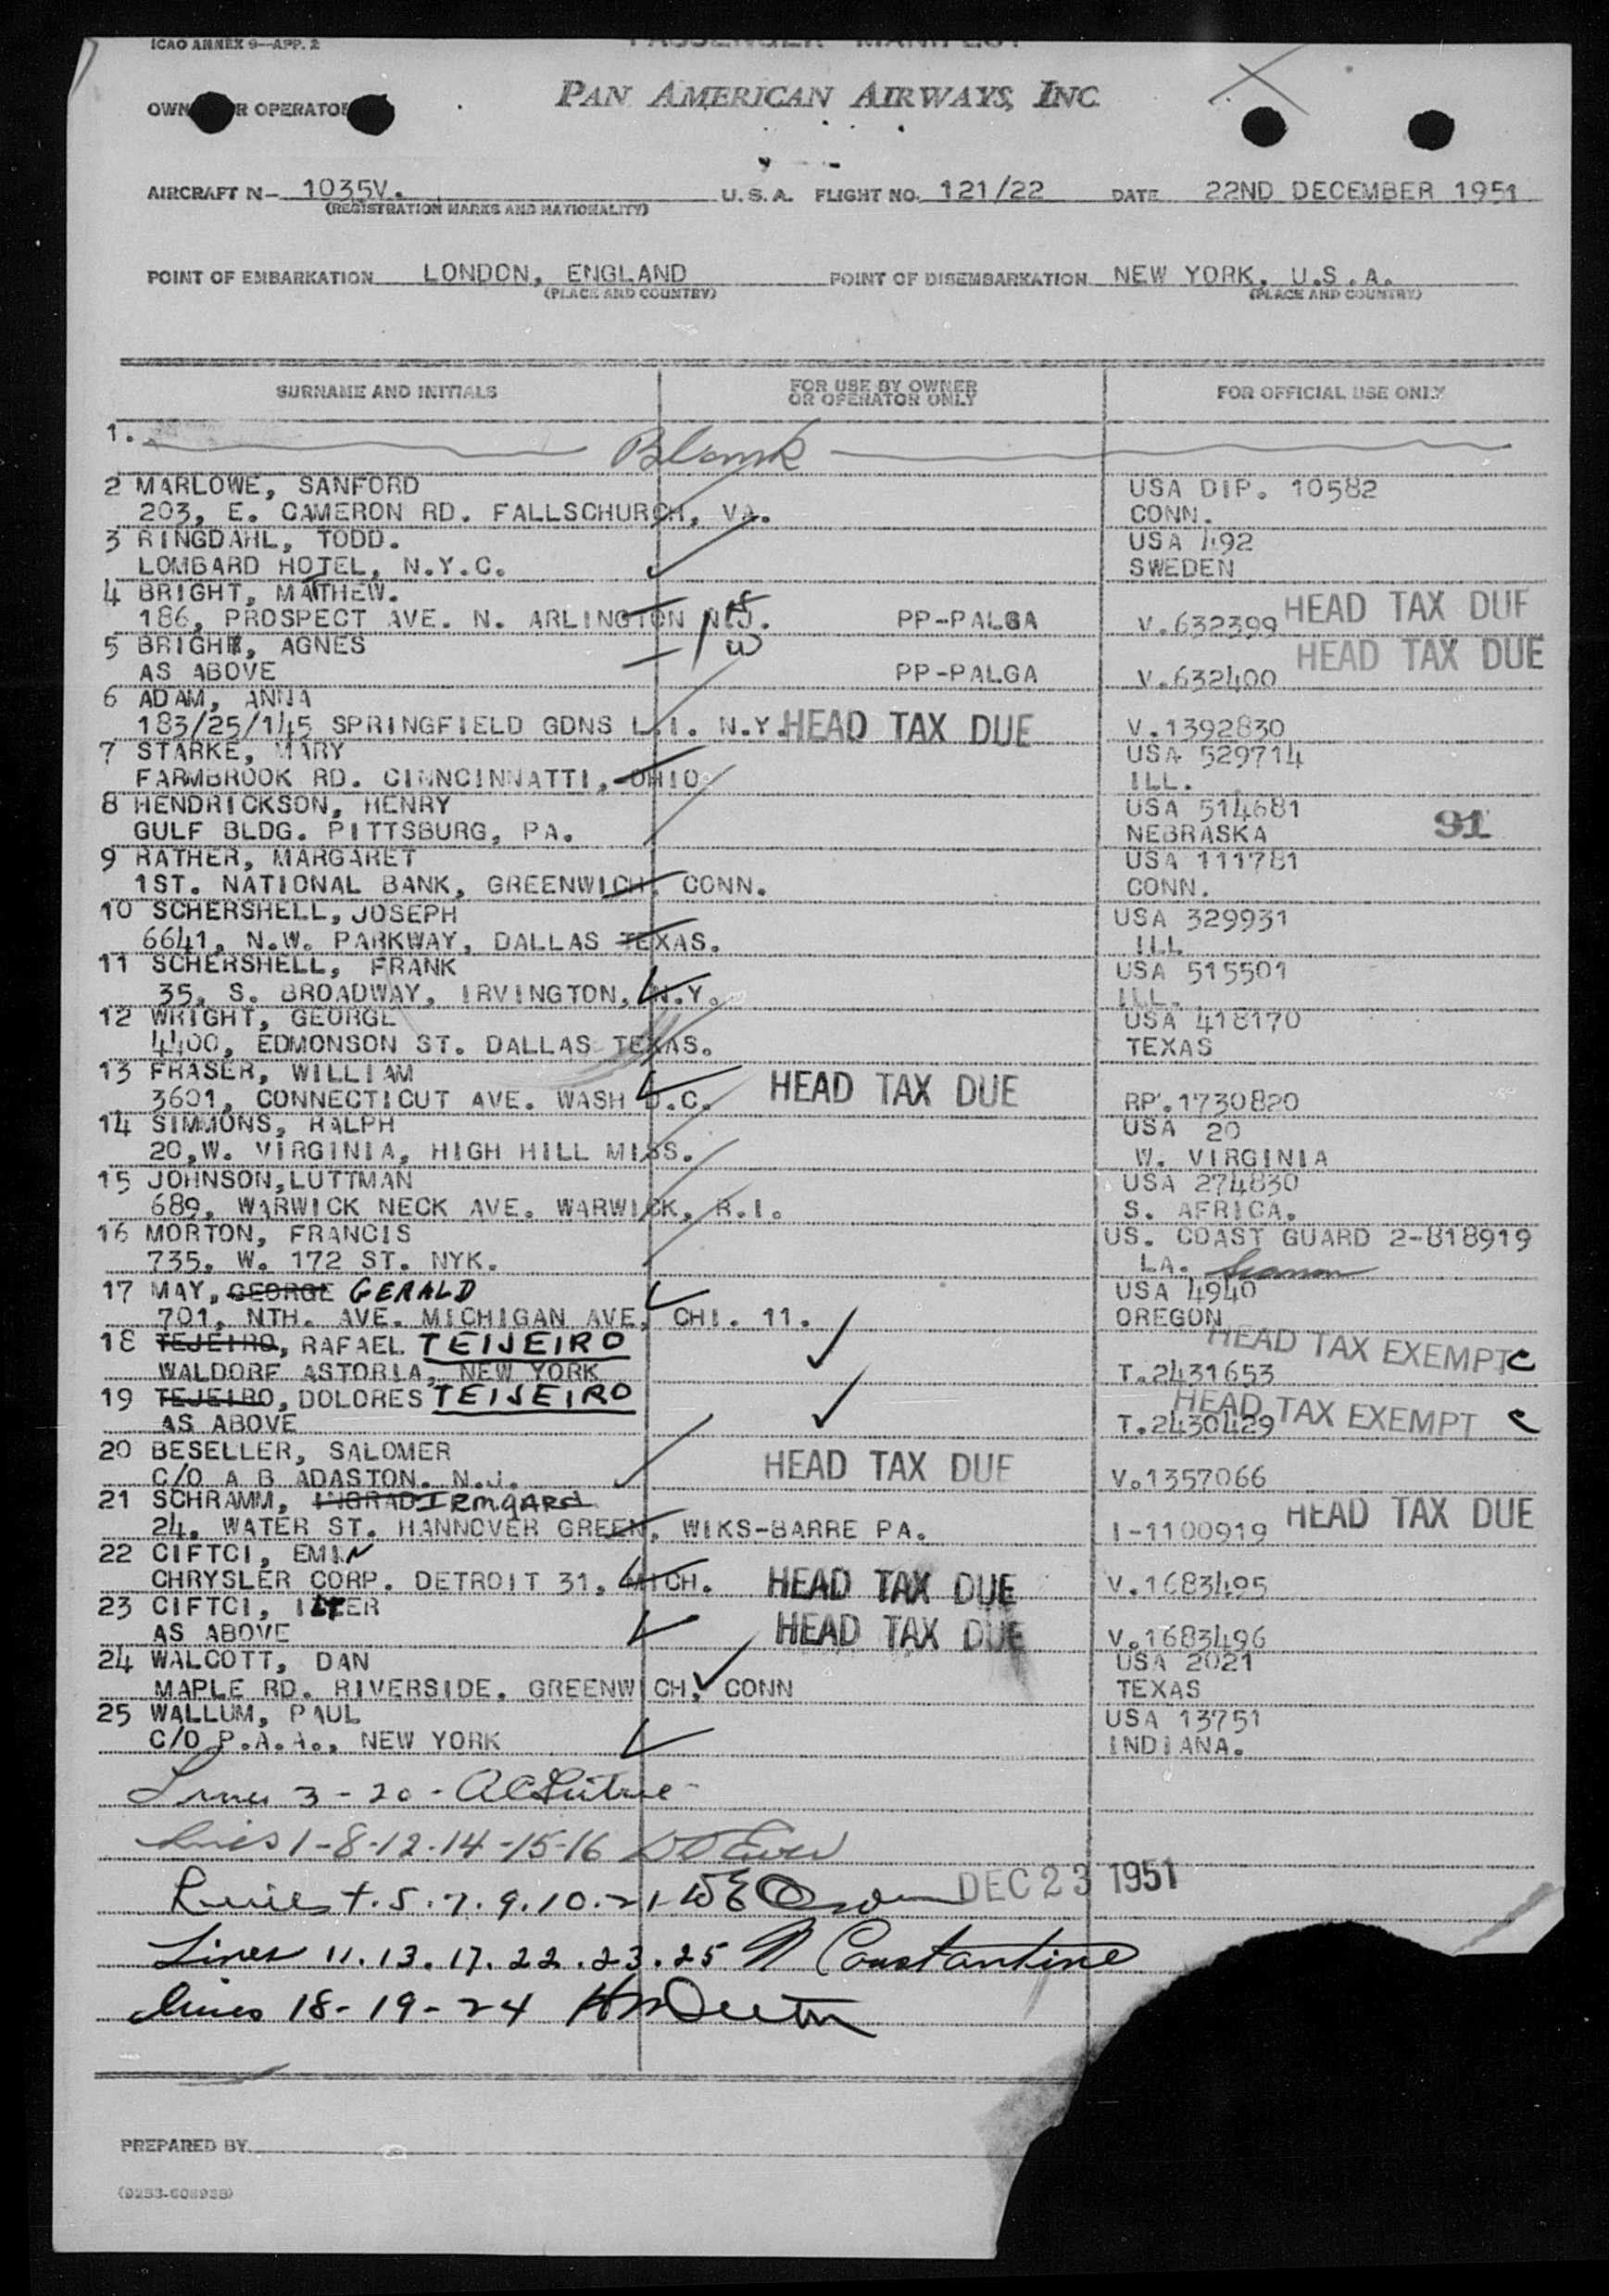 ICAO ANNEX 9—APP. 2
PASSENGER MANIFEST
OWNER OR OPERATOR
PAN AMERICAN AIRWAYS, INC
AIRCRAFT N- 1035V. U.S.A. FLIGHT NO. 121/22 DATE 22ND DECEMBER 1951
(REGISTRATION MARKS AND NATIONALITY)
POINT OF EMBARKATION LONDON, ENGLAND POINT OF DISEMBARKATION NEW YORK, U.S.A.
(PLACE AND COUNTRY) (PLACE AND COUNTRY)
SURNAME AND INITIALS FOR USE BY OWNER OR OPERATOR ONLY FOR OFFICIAL USE ONLY
1. Blank
2 MARLOWE, SANFORD USA DIP. 10582
203, E. CAMERON RD. FALLSCHURCH, VA. CONN.
3 RINGDAHL, TODD. USA 492
LOMBARD HOTEL, N.Y.C. SWEDEN
4 BRIGHT, MATHEW. HEAD TAX DUE
186, PROSPECT AVE. N. ARLINGTON N.J. PP-PALGA V.632399
5 BRIGHT, AGNES HEAD TAX DUE
AS ABOVE PP-PALGA V.632400
6 ADAM, ANNA
183/25/145 SPRINGFIELD GDNS L.I. N.Y. HEAD TAX DUE V.1392830
7 STARKE, MARY USA 529714
FARMBROOK RD. CINNCINNATTI, OHIO ILL.
8 HENDRICKSON, HENRY USA 514681
GULF BLDG. PITTSBURG, PA. NEBRASKA 91
9 RATHER, MARGARET USA 111781
1ST. NATIONAL BANK, GREENWICH, CONN. CONN.
10 SCHERSHELL, JOSEPH USA 329931
6641, N.W. PARKWAY, DALLAS TEXAS. ILL
11 SCHERSHELL, FRANK USA 515501
35, S. BROADWAY, IRVINGTON, N.Y. ILL.
12 WRIGHT, GEORGE USA 418170
4400, EDMONSON ST. DALLAS TEXAS. TEXAS
13 FRASER, WILLIAM HEAD TAX DUE
3601, CONNECTICUT AVE. WASH D.C. RP.1730820
14 SIMMONS, RALPH USA 20
20,W. VIRGINIA, HIGH HILL MISS. W. VIRGINIA
15 JOHNSON,LUTTMAN USA 274830
689, WARWICK NECK AVE. WARWICK, R.I. S. AFRICA.
16 MORTON, FRANCIS US. COAST GUARD 2-818919
735. W. 172 ST. NYK. LA. Seaman
17 MAY, GEORGE GERALD USA 4940
701, NTH. AVE. MICHIGAN AVE, CHI. 11. OREGON
18 TEJEIRO, RAFAEL TEIJEIRO HEAD TAX EXEMPT C
WALDORF ASTORIA, NEW YORK T.2431653
19 TEJEIRO, DOLORES TEIJEIRO HEAD TAX EXEMPT C
AS ABOVE T.2430429
20 BESELLER, SALOMER HEAD TAX DUE
C/O A B ADASTON. N.J. V.1357066
21 SCHRAMM, INGRAD IRmgARd HEAD TAX DUE
24. WATER ST. HANNOVER GREEN, WIKS-BARRE PA. I-1100919
22 CIFTCI, EMIN
CHRYSLER CORP. DETROIT 31, MICH. HEAD TAX DUE V.1683495
23 CIFTCI, ILTER HEAD TAX DUE
AS ABOVE V.1683496
24 WALCOTT, DAN USA 2021
MAPLE RD. RIVERSIDE. GREENWICH, CONN TEXAS
25 WALLUM, PAUL USA 13751
C/O P.A.A., NEW YORK INDIANA.
Lines 3 - 20 -
Lines 1-8-12-14-15-16
Lines 4.5.7.9.10.21 DEC 23 1951
Lines 11.13.17.22.23.25 Constantine
Lines 18-19-24
PREPARED BY